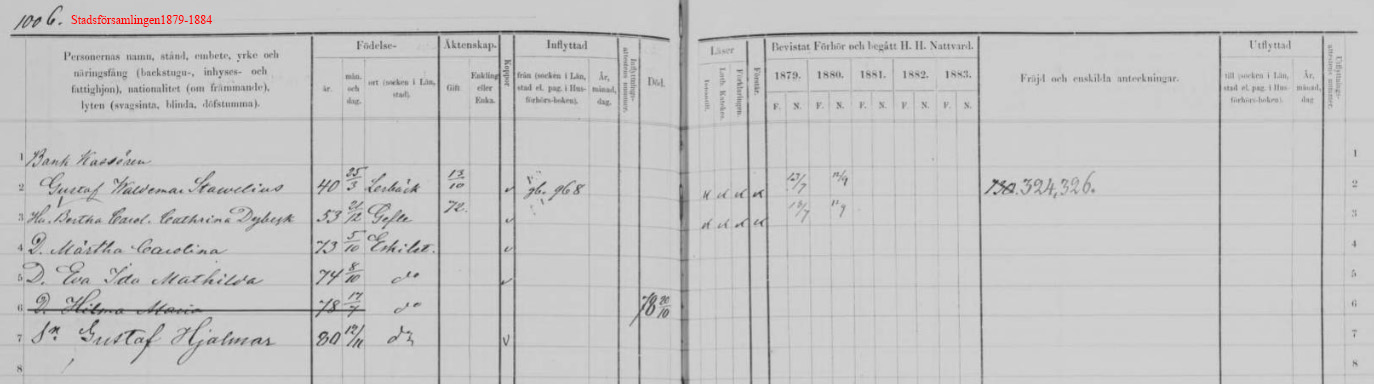 1006. Stadsförsamlingen1879-1884
Personernas namn, stånd, embete, yrke och
näringsfång (backstugu-, inhyses- och
fattighjon), nationalitet (om främmande),
lyten (svagsinta, blinda, döfstumma).
Födelse-
år.
mån.
och
dag.
ort (socken i Län,
stad).
Äktenskap.
Gift.
Enkling
eller
Enka.
Koppor.
Inflyttad
från (socken i Län,
stad el. pag. i Hus-
förhörs-boken).
År,
månad,
dag.
Inflyttnings-
attestens nummer.
Död.
Läser
Innantill.
Luth. Kateches.
Förklaringen.
Förstår.
Bevistat Förhör och begått H. H. Nattvard.
1879. 1880. 1881. 1882. 1883.
F. N. F. N. F. N. F. N. F. N.
Fräjd och enskilda anteckningar.
Utflyttad
till (socken i Län,
stad el. pag. i Hus-
förhörs-boken).
År,
månad,
dag
Utflyttnings-
attestens nummer.
1 Bank Kassören 1
2 Gustaf Waldemar Stawelius 40 25/3 Lerbäck 13/10 gb. 968 13/7 324,326. 2
3 Hu. Bertha Carol. Cathrina Dybeck 53 21/12 Gefle 72. 13/7 3
4 D. Märtha Carolina 73 5/10 Eskilst. 4
5 D. Eva Ida Mathilda 74 8/10 do 5
6 D. Hilma Maria 78 17/7 do 78 20/10 6
7 Sn. Gustaf Hjalmar 80 12/11 do 7
8 8